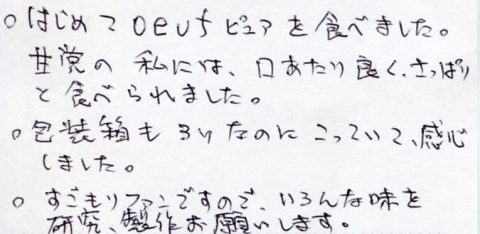 ○ はじめて oeuf ピュアを食べました。
甘党の 私には、口あたり良く、さっぱり
と食べられました。
○ 包装箱も 3りなのに こっていて、感心
しました。
○ すごもりファンですので、いろんな味を
研究、製作お願いします。